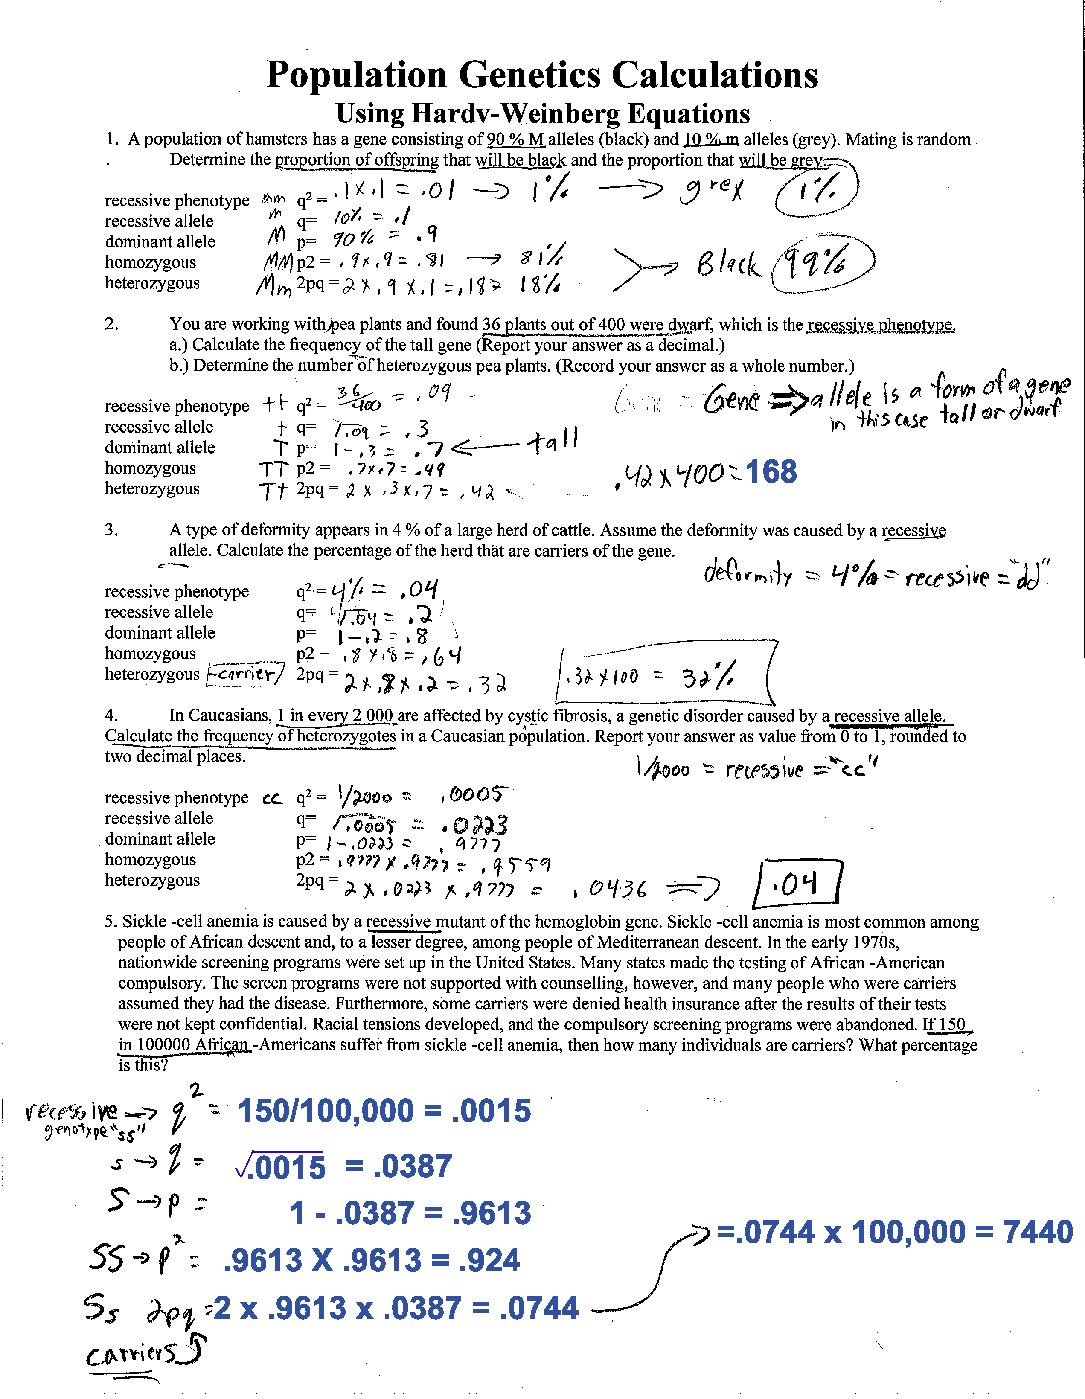 Population Genetics Calculations
Using Hardv-Weinberg Equations
1. A population of hamsters has a gene consisting of 90 % M alleles (black) and 10 % m alleles (grey). Mating is random.
Determine the proportion of offspring that will be black and the proportion that will be grey.
recessive phenotype mm q² = .1 x .1 = .01 → 1% → grey 1%
recessive allele m q= 10% = .1
dominant allele M p= 90% = .9
homozygous MM p2 = .9 x .9 = .81 → 81%
heterozygous Mm 2pq = 2 x .9 x .1 = .18 = 18%
→ Black 99%
2. You are working with pea plants and found 36 plants out of 400 were dwarf, which is the recessive phenotype.
a.) Calculate the frequency of the tall gene (Report your answer as a decimal.)
b.) Determine the number of heterozygous pea plants. (Record your answer as a whole number.)
recessive phenotype tt q² = 36/400 = .09
Gene => allele is a form of a gene
in this case tall or dwarf
recessive allele t q= √.09 = .3
dominant allele T p= 1-.3 = .7 ← tall
homozygous TT p2 = .7x.7 = .49
heterozygous Tt 2pq = 2 x .3 x .7 = .42
.42 x 400 = 168
3. A type of deformity appears in 4 % of a large herd of cattle. Assume the deformity was caused by a recessive
allele. Calculate the percentage of the herd that are carriers of the gene.
deformity = 4% = recessive = "dd"
recessive phenotype q² = 4% = .04
recessive allele q= √.04 = .2
dominant allele p= 1-.2 = .8
homozygous p2 = .8 x .8 = .64
heterozygous (-carrier) 2pq = 2 x .8 x .2 = .32
.32 x 100 = 32%
4. In Caucasians, 1 in every 2 000 are affected by cystic fibrosis, a genetic disorder caused by a recessive allele.
Calculate the frequency of heterozygotes in a Caucasian population. Report your answer as value from 0 to 1, rounded to
two decimal places.
1/2000 = recessive = "cc"
recessive phenotype cc q² = 1/2000 = .0005
recessive allele q= √.0005 = .0223
dominant allele p= 1-.0223 = .9777
homozygous p2 = .9777 x .9777 = .9559
heterozygous 2pq = 2 x .0223 x .9777 = .0436 => .04
5. Sickle -cell anemia is caused by a recessive mutant of the hemoglobin gene. Sickle -cell anemia is most common among
people of African descent and, to a lesser degree, among people of Mediterranean descent. In the early 1970s,
nationwide screening programs were set up in the United States. Many states made the testing of African -American
compulsory. The screen programs were not supported with counselling, however, and many people who were carriers
assumed they had the disease. Furthermore, some carriers were denied health insurance after the results of their tests
were not kept confidential. Racial tensions developed, and the compulsory screening programs were abandoned. If 150
in 100000 African -Americans suffer from sickle -cell anemia, then how many individuals are carriers? What percentage
is this?
recessive → q² = 150/100,000 = .0015
genotype "ss"
s → q = √.0015 = .0387
S → p = 1 - .0387 = .9613
SS → p² = .9613 X .9613 = .924
Ss 2pq = 2 x .9613 x .0387 = .0744
=.0744 x 100,000 = 7440
carriers